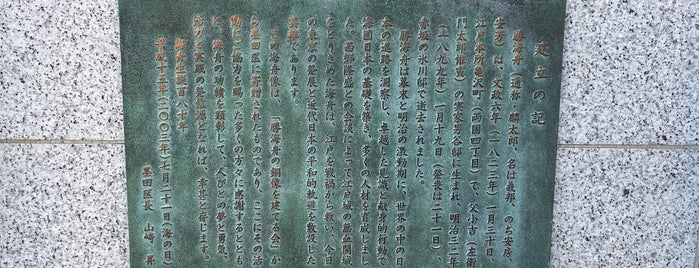 建立の記
勝海舟(通称・麟太郎、名は義邦、のち安房、
安芳)は、文政六年(一八二三年)一月三十日、
江戸本所亀沢町(両国四丁目)で、父小吉(左衛
門太郎惟寅)の実家男谷邸に生まれ、明治三二年
(一八九九年)一月十九日(発喪は二十一日)、
赤坂の氷川邸で逝去されました。
勝海舟は幕末と明治の激動期に、世界の中の日
本の進路を洞察し、卓越した見識と献身的行動で
海国日本の基礎を築き、多くの人材を育成しまし
た。西郷隆盛との会談によって江戸城の無血開城
をとりきめた海舟は、江戸を戦禍から救い、今日
の東京の発展と近代日本の平和的軌道を敷設した
英雄であります。
この海舟像は、「勝海舟の銅像を建てる会」か
ら墨田区に寄贈されたものであり、ここにその活
動にご協力を賜った多くの方々に感謝するととも
に、海舟の功績を顕彰して、人びとの夢と勇気、
活力と実践の発信源となれば、幸甚と存じます。
海舟生誕百八十年
平成十五年(二〇〇三年)七月二十一日(海の日)
墨田区長 山﨑 昇